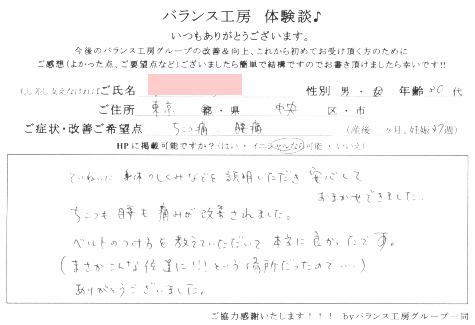 バランス工房 体験談♪
いつもありがとうございます。
今後のバランス工房グループの改善&向上、これから初めてお受け頂く方のために
ご感想(よかった点、ご要望点など)ございましたら簡単で結構ですのでお書き頂けましたら幸いです!!
もし差し支えなければご氏名 性別 男・女 年齢 30代
ご住所 東京 都・県 中央 区・市
ご症状・改善ご希望点 ちこつ痛 腰痛 (産後 ヶ月、妊娠37週)
HPに掲載可能ですか?(はい・イニシャルなら可能・いいえ)
ていねいに身体のしくみなどを説明いただき安心して
おまかせできました。
ちこつも腰も痛みが改善されました。
ベルトのつけ方を教えていただいて本当に良かったです。
(まさかこんな位置に!!!という場所だったので....)
ありがとうございました。
ご協力感謝いたします!!! byバランス工房グループ一同